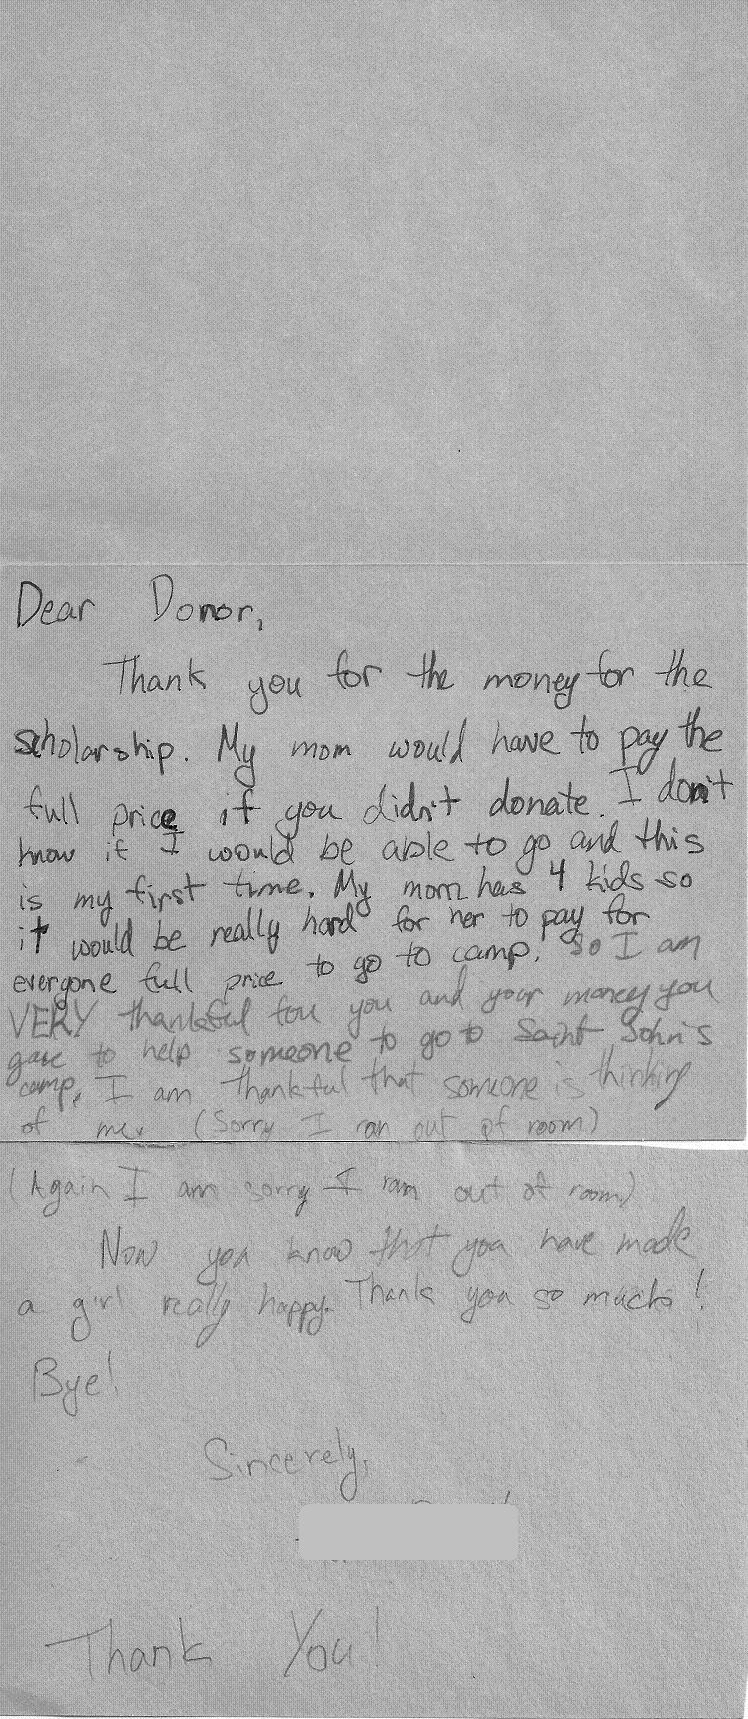 Dear Donor,
Thank you for the money for the
scholarship. My mom would have to pay the
full price if you didn't donate. I don't
know if I would be able to go and this
is my first time. My mom has 4 kids so
it would be really hard for her to pay for
everyone full price to go to camp. So I am
VERY thankful fou you and your money you
gave to help someone to go to Saint John's
camp. I am thankful that someone is thinking
of me. (Sorry I ran out of room)
(Again I am sorry I ran out of room)
Now you know that you have made
a girl really happy. Thank you so much!
Bye!
Sincerely,
Thank You!